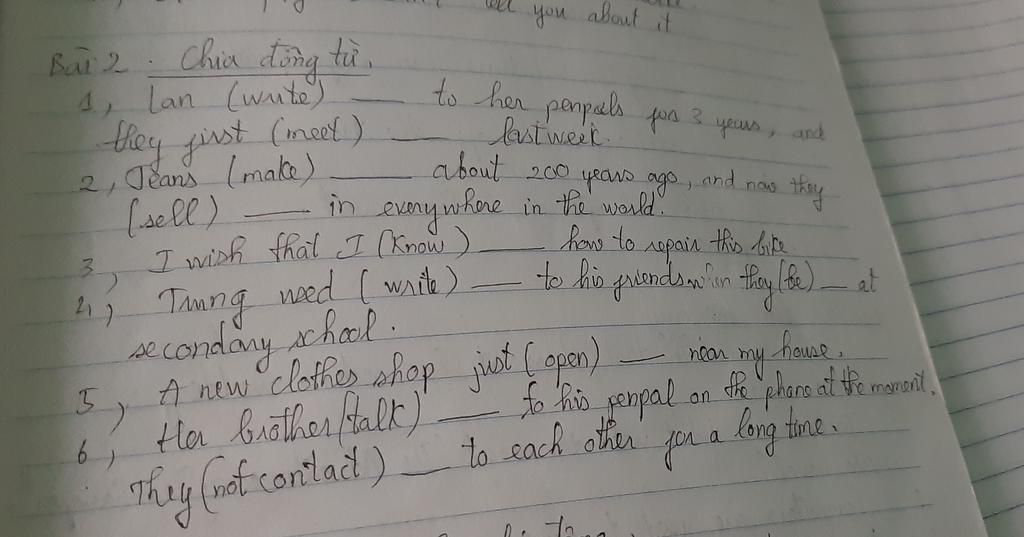 you about it
Bài 2. Chia động từ.
1, Lan (write) ___ to her penpals for 3 years, and
they first (meet) ___ last week.
2, Jeans (make) ___ about 200 years ago, and now they
(sell) ___ in everywhere in the world.
3, I wish that I (know) ___ how to repair this bike
4, Trung used (write) ___ to his friends when they (be) ___ at
secondary school.
5, A new clothes shop just (open) ___ near my house.
6, Her brother (talk) ___ to his penpal on the phone at the moment.
They (not contact) ___ to each other for a long time.